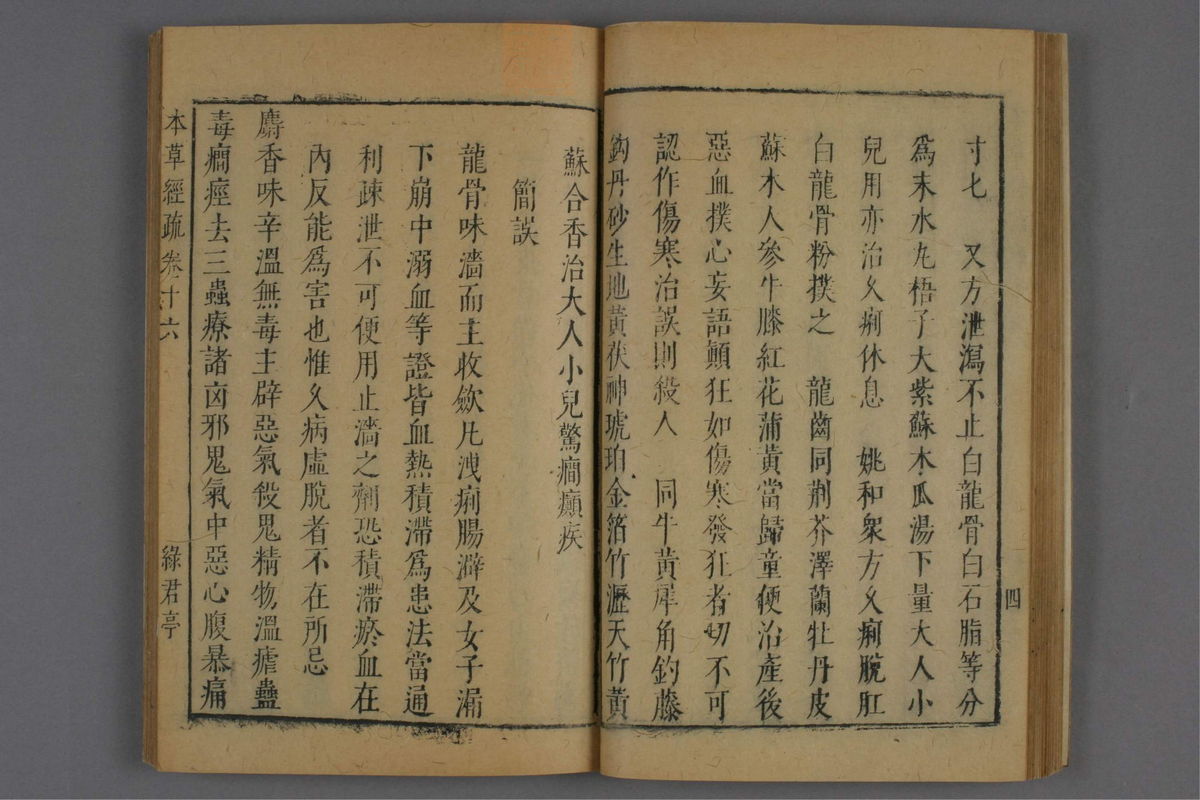 四
寸匕　又方泄瀉不止白龍骨白石脂等分
爲末水丸梧子大紫蘇木瓜湯下量大人小
兒用亦治久痢休息　姚和衆方久痢脫肛
白龍骨粉撲之　龍齒同荆芥澤蘭牡丹皮
蘇木人參牛膝紅花蒲黃當歸童便治產後
惡血撲心妄語顛狂如傷寒發狂者切不可
認作傷寒治誤則殺人　同牛黃犀角鈎藤
鈎丹砂生地黃茯神琥珀金箔竹瀝天竹黃
蘇合香治大人小兒驚癎癲疾
簡誤
龍骨味濇而主收斂凡洩痢腸澼及女子漏
下崩中溺血等證皆血熱積滯爲患法當通
利疎泄不可便用止濇之劑恐積滯瘀血在
內反能爲害也惟久病虛脫者不在所忌
麝香味辛溫無毒主辟惡氣殺鬼精物溫瘧蠱
毒癎痙去三蟲療諸凶邪鬼氣中惡心腹暴痛
本草經疏　卷十六　綠君亭